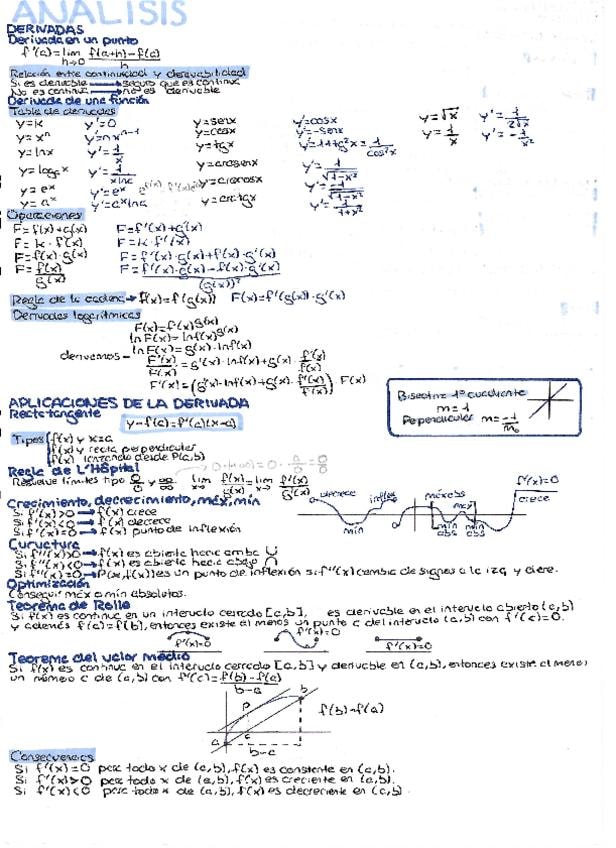 ANALISIS
DERIVADAS
Derivada en un punto
f'(a)=lim h→0 f(a+h)-f(a) / h
Relación entre continuidad y derivabilidad
Si es derivable → seguro que es continua
No es continua → no es derivable
Derivada de una función
Tabla de derivadas
y=k y'=0 y=senx y'=cosx y=√x y'=1/2√x
y=xⁿ y'=nxⁿ⁻¹ y=cosx y'=-senx y=1/x y'=-1/x²
y=lnx y'=1/x y=tgx y'=1+tg²x=1/cos²x
y=logₐx y'=1/xlna y=arcsenx y'=1/√1-x²
y=eˣ y'=eˣ y=arccosx y'=-1/√1-x²
y=aˣ y'=aˣlna y=arctgx y'=1/1+x²
Operaciones
F=f(x)+g(x) F=f'(x)+g'(x)
F=k·f(x) F=k·f'(x)
F=f(x)·g(x) F=f'(x)·g(x)+f(x)·g'(x)
F=f(x)/g(x) F=f'(x)·g(x)-f(x)·g'(x) / (g(x))²
Regla de la cadena → F(x)=f(g(x)) F(x)=f'(g(x))·g'(x)
Derivadas logarítmicas
F(x)=f(x)^g(x)
lnF(x)=lnf(x)^g(x)
lnF(x)=g(x)·lnf(x)
derivamos - F'(x)/F(x)=g'(x)·lnf(x)+g(x)·f'(x)/f(x)
F'(x)=(g'(x)·lnf(x)+g(x)·f'(x)/f(x))·F(x)
Bisectriz 1º cuadrante
m=1
Perpendicular m=-1/m₀
APLICACIONES DE LA DERIVADA
Recta tangente
y-f(a)=f'(a)(x-a)
Tipos f(x) y x=a
f(x) y recta perpendicular
f(x) desde P(a,b)
Regla de L'Hôpital
Resuelve límites tipo 0/0 y ∞/∞ lim f(x)/g(x)=lim f'(x)/g'(x)
Crecimiento, decrecimiento, máx, mín
Si f'(x)>0 → f(x) crece
Si f'(x)<0 → f(x) decrece
Si f'(x)=0 → f(x) punto de inflexión
decrece inflex máxabs máx f'(x)=0 crece
mín mín abs mín abs
Curvatura
Si f''(x)>0 → f(x) es abierta hacia arriba ∪
Si f''(x)<0 → f(x) es abierta hacia abajo ∩
Si f''(x)=0 → P(x,f(x)) es un punto de inflexión si f''(x) cambia de signos a la izq y dere.
Optimización
Conseguir máx o mín absolutos.
Teorema de Rolle
Si f(x) es continua en un intervalo cerrado [a,b], es derivable en el intervalo abierto (a,b)
y además f(a)=f(b), entonces existe al menos un punto c del intervalo (a,b) con f'(c)=0.
f'(x)=0 f'(x)=0 f'(x)=0
Teorema del valor medio
Si f(x) es continua en el intervalo cerrado [a,b] y derivable en (a,b), entonces existe al menos
un número c de (a,b) con f'(c)=f(b)-f(a) / b-a
b
P f(b)-f(a)
a c
b-a
Consecuencias
Si f'(x)=0 para todo x de (a,b), f(x) es constante en (a,b).
Si f'(x)>0 para todo x de (a,b), f(x) es creciente en (a,b).
Si f'(x)<0 para todo x de (a,b), f(x) es decreciente en (a,b).